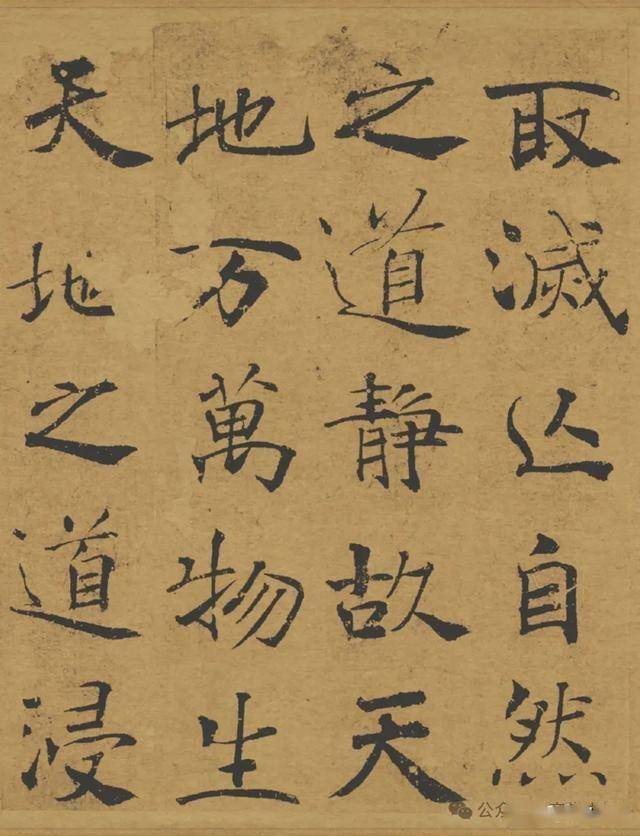 取滅亾自然
之道静故天
地万萬物生
天地之道浸